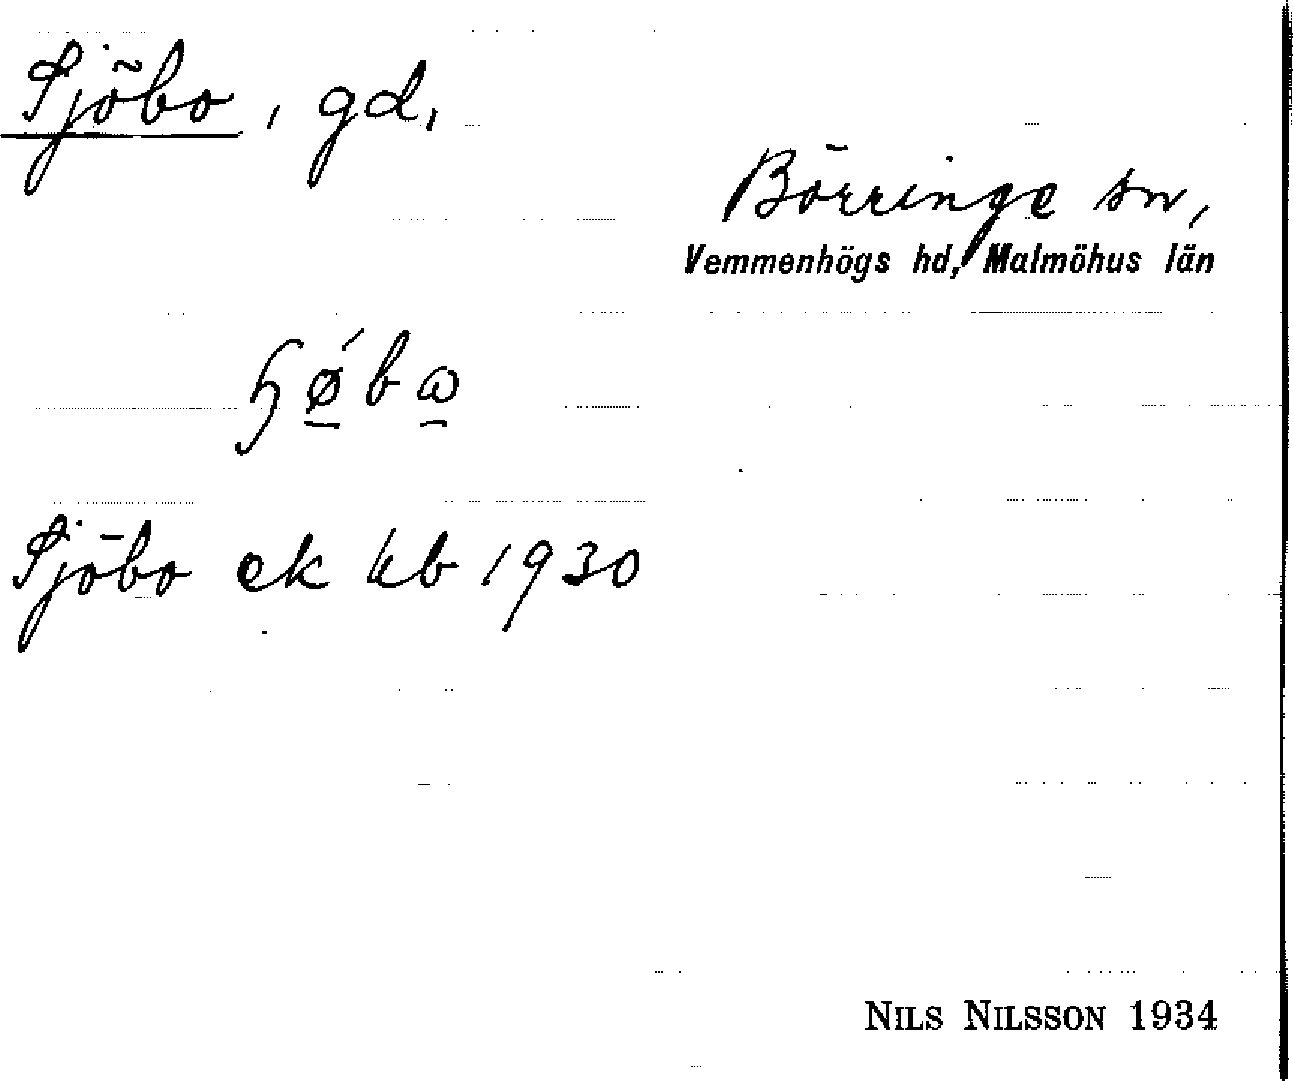 Sjöbo, gd,
Börringe sn,
Vemmenhögs hd, Malmöhus län
Sjöbo ek kb 1930
NILS NILSSON 1934